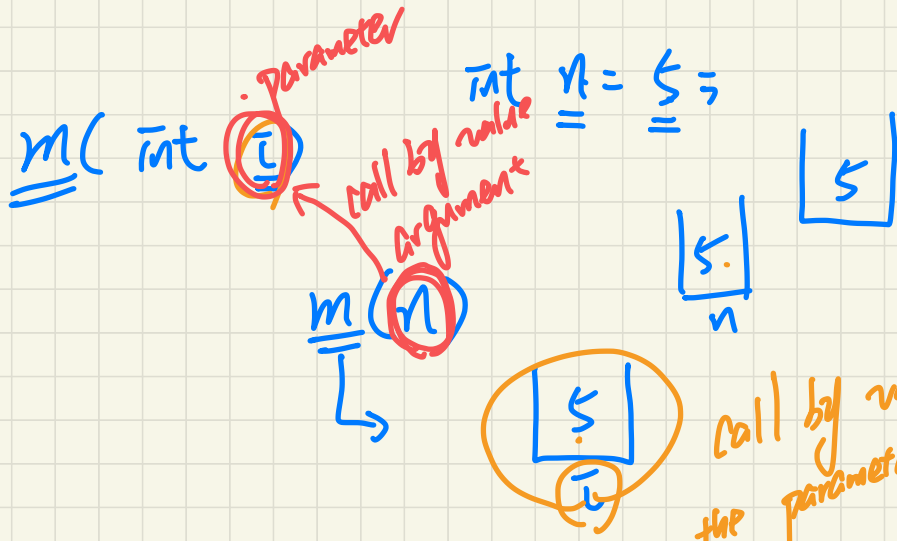 parameter
int n = 5;
m( int i)
call by value
argument
5
5
n
m (n)
5
i
call by
the paramet